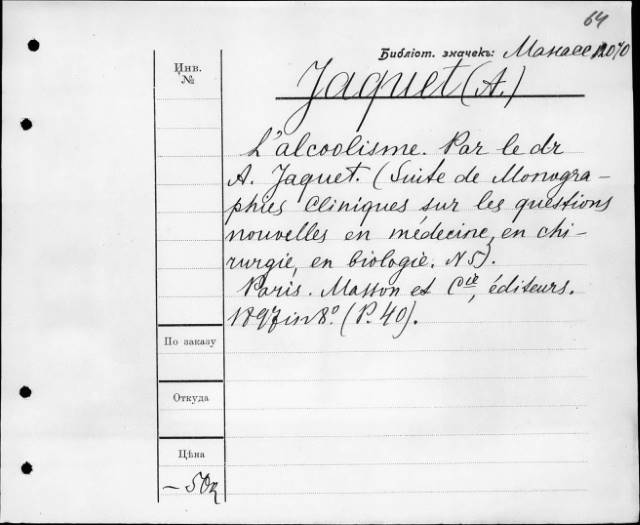 64
Библіот. значекъ: Манасс 12070
Инв.
№
Jaquet (A.)
L'alcoolisme. Par le dr
A. Jaquet. (Suite de Monogra-
phies Cliniques sur les questions
nouvelles en médecine, en chi-
rurgie, en biologie. N 5).
Paris. Masson et Cie, éditeurs.
1897 in 8º. (P. 40).
По заказу
Откуда
Цѣна
— 50к